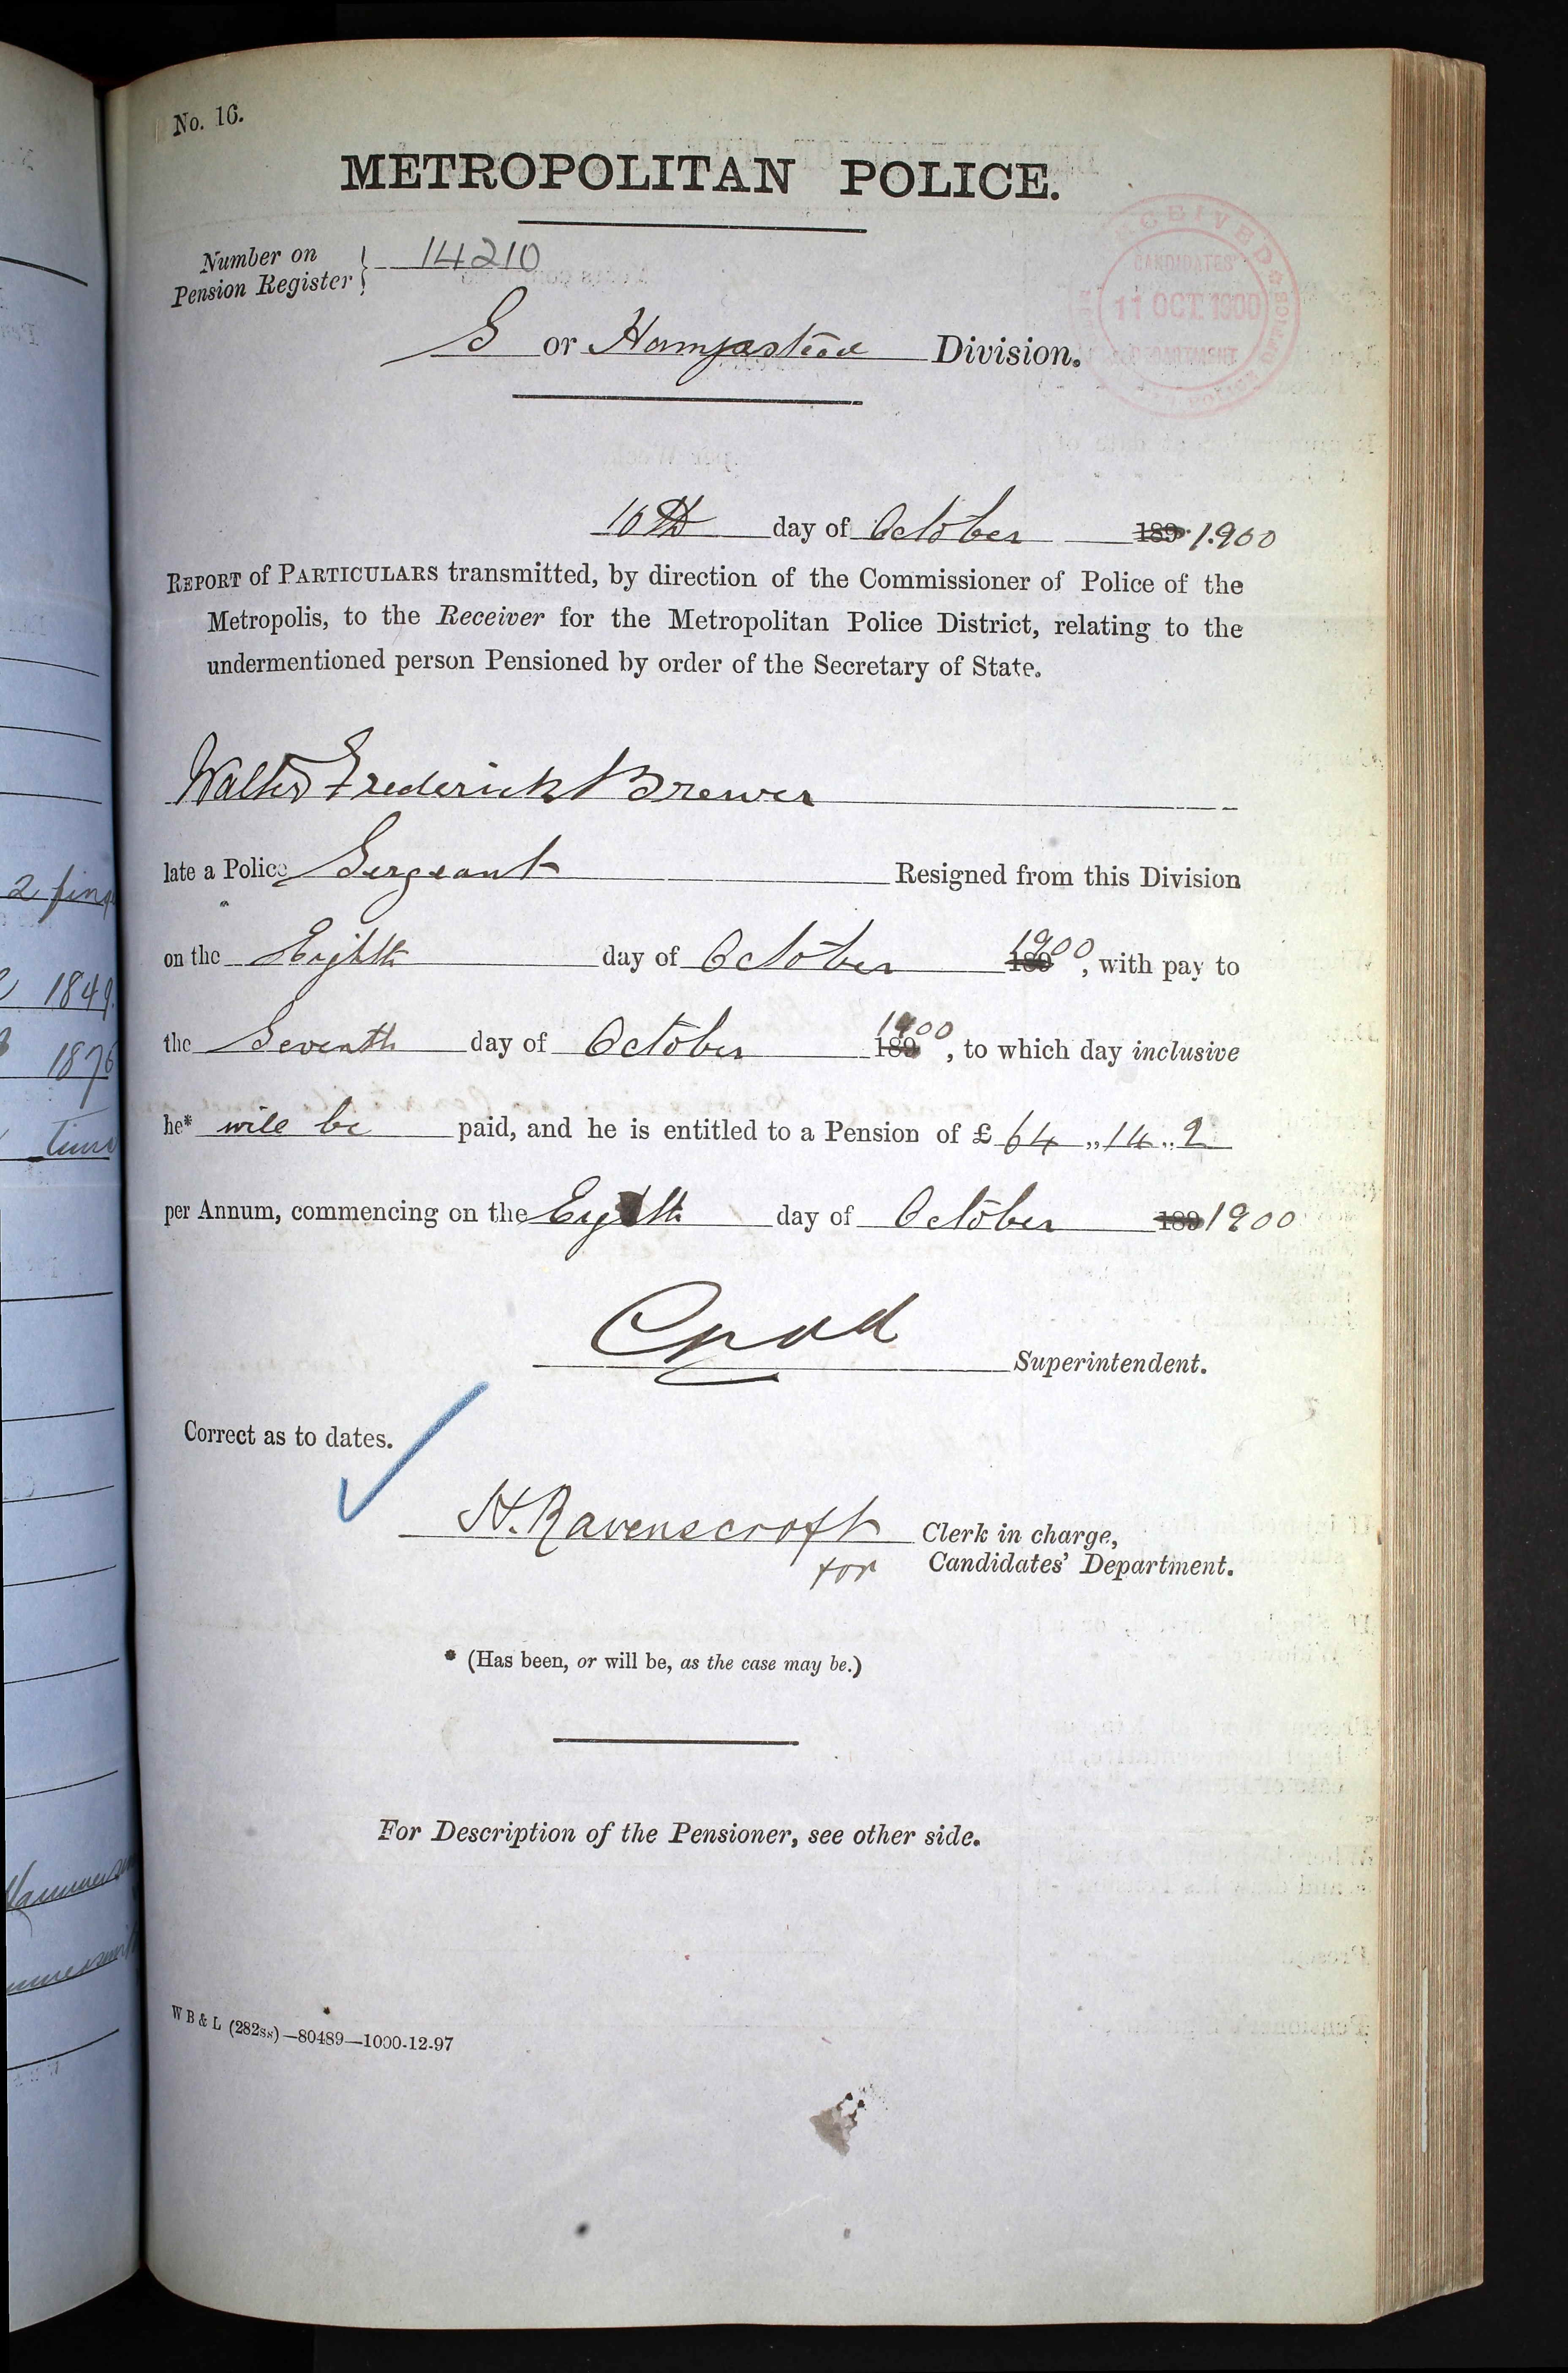 No. 16.
METROPOLITAN POLICE.
Number on
Pension Register } 14210
RECEIVED
CANDIDATES'
11 OCT. 1900
DEPARTMENT
S or Hampstead Division.
10th day of October 189 1900
REPORT of PARTICULARS transmitted, by direction of the Commissioner of Police of the
Metropolis, to the Receiver for the Metropolitan Police District, relating to the
undermentioned person Pensioned by order of the Secretary of State.
Walter Frederick Brewer
late a Police Sergeant Resigned from this Division
on the Eighth day of October 189 1900, with pay to
the Seventh day of October 189 1900, to which day inclusive
he* will be paid, and he is entitled to a Pension of £ 64 „ 14 „ 2
per Annum, commencing on the Eighth day of October 189 1900
Superintendent.
Correct as to dates.
H. Ravenscroft Clerk in charge,
for Candidates' Department.
* (Has been, or will be, as the case may be.)
For Description of the Pensioner, see other side.
W B & L (282ss)—80489—1000-12-97
2 fing
1849
1876
time